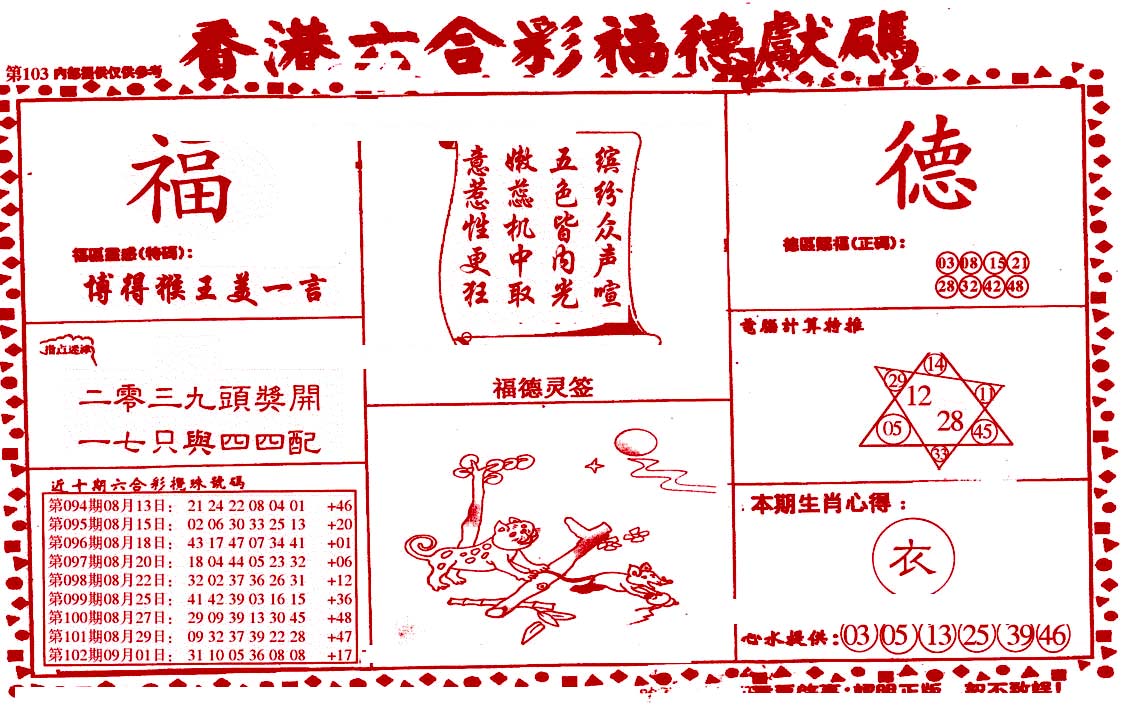 香港六合彩福德獻碼
第103 内部提供仅供参考
福
福區靈感(特碼):
博得猴王美一言
指点迷津
二零三九頭獎開
一七只與四四配
近十期六合彩攪珠號碼
第094期08月13日: 21 24 22 08 04 01 +46
第095期08月15日: 02 06 30 33 25 13 +20
第096期08月18日: 43 17 47 07 34 41 +01
第097期08月20日: 18 04 44 05 23 32 +06
第098期08月22日: 32 02 37 36 26 31 +12
第099期08月25日: 41 42 39 03 16 15 +36
第100期08月27日: 29 09 39 13 30 45 +48
第101期08月29日: 09 32 37 39 22 28 +47
第102期09月01日: 31 10 05 36 08 08 +17
缤纷众声喧
五色皆内光
嫩蕊机中取
意惹性更狂
福德灵签
德
德區賜福(正碼):
03 08 15 21
28 32 42 48
電腦計算特推
14
29 12 11
05 28 45
33
本期生肖心得:
衣
心水提供:03 05 13 25 39 46